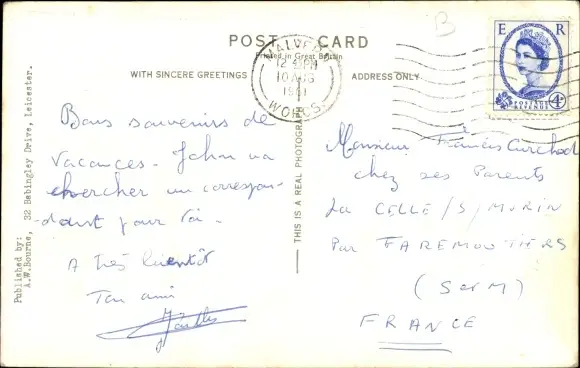 POST CARD
Printed in Great Britain
WITH SINCERE GREETINGS
ADDRESS ONLY
MALVERN
12 PM
10 AUG
1961
WORCS.
E R
POSTAGE
REVENUE
4D
Bons souvenirs de
Vacances - John va
chercher un correspon-
dant pour toi -
A très bientôt
Ton ami
Monsieur Francis
chez ses Parents
La CELLE/S/MORIN
Par FAREMOUTIERS
(S et M)
FRANCE
THIS IS A REAL PHOTOGRAPH
Published by:
A.W.Bourne, 32 Babingley Drive, Leicester.
B